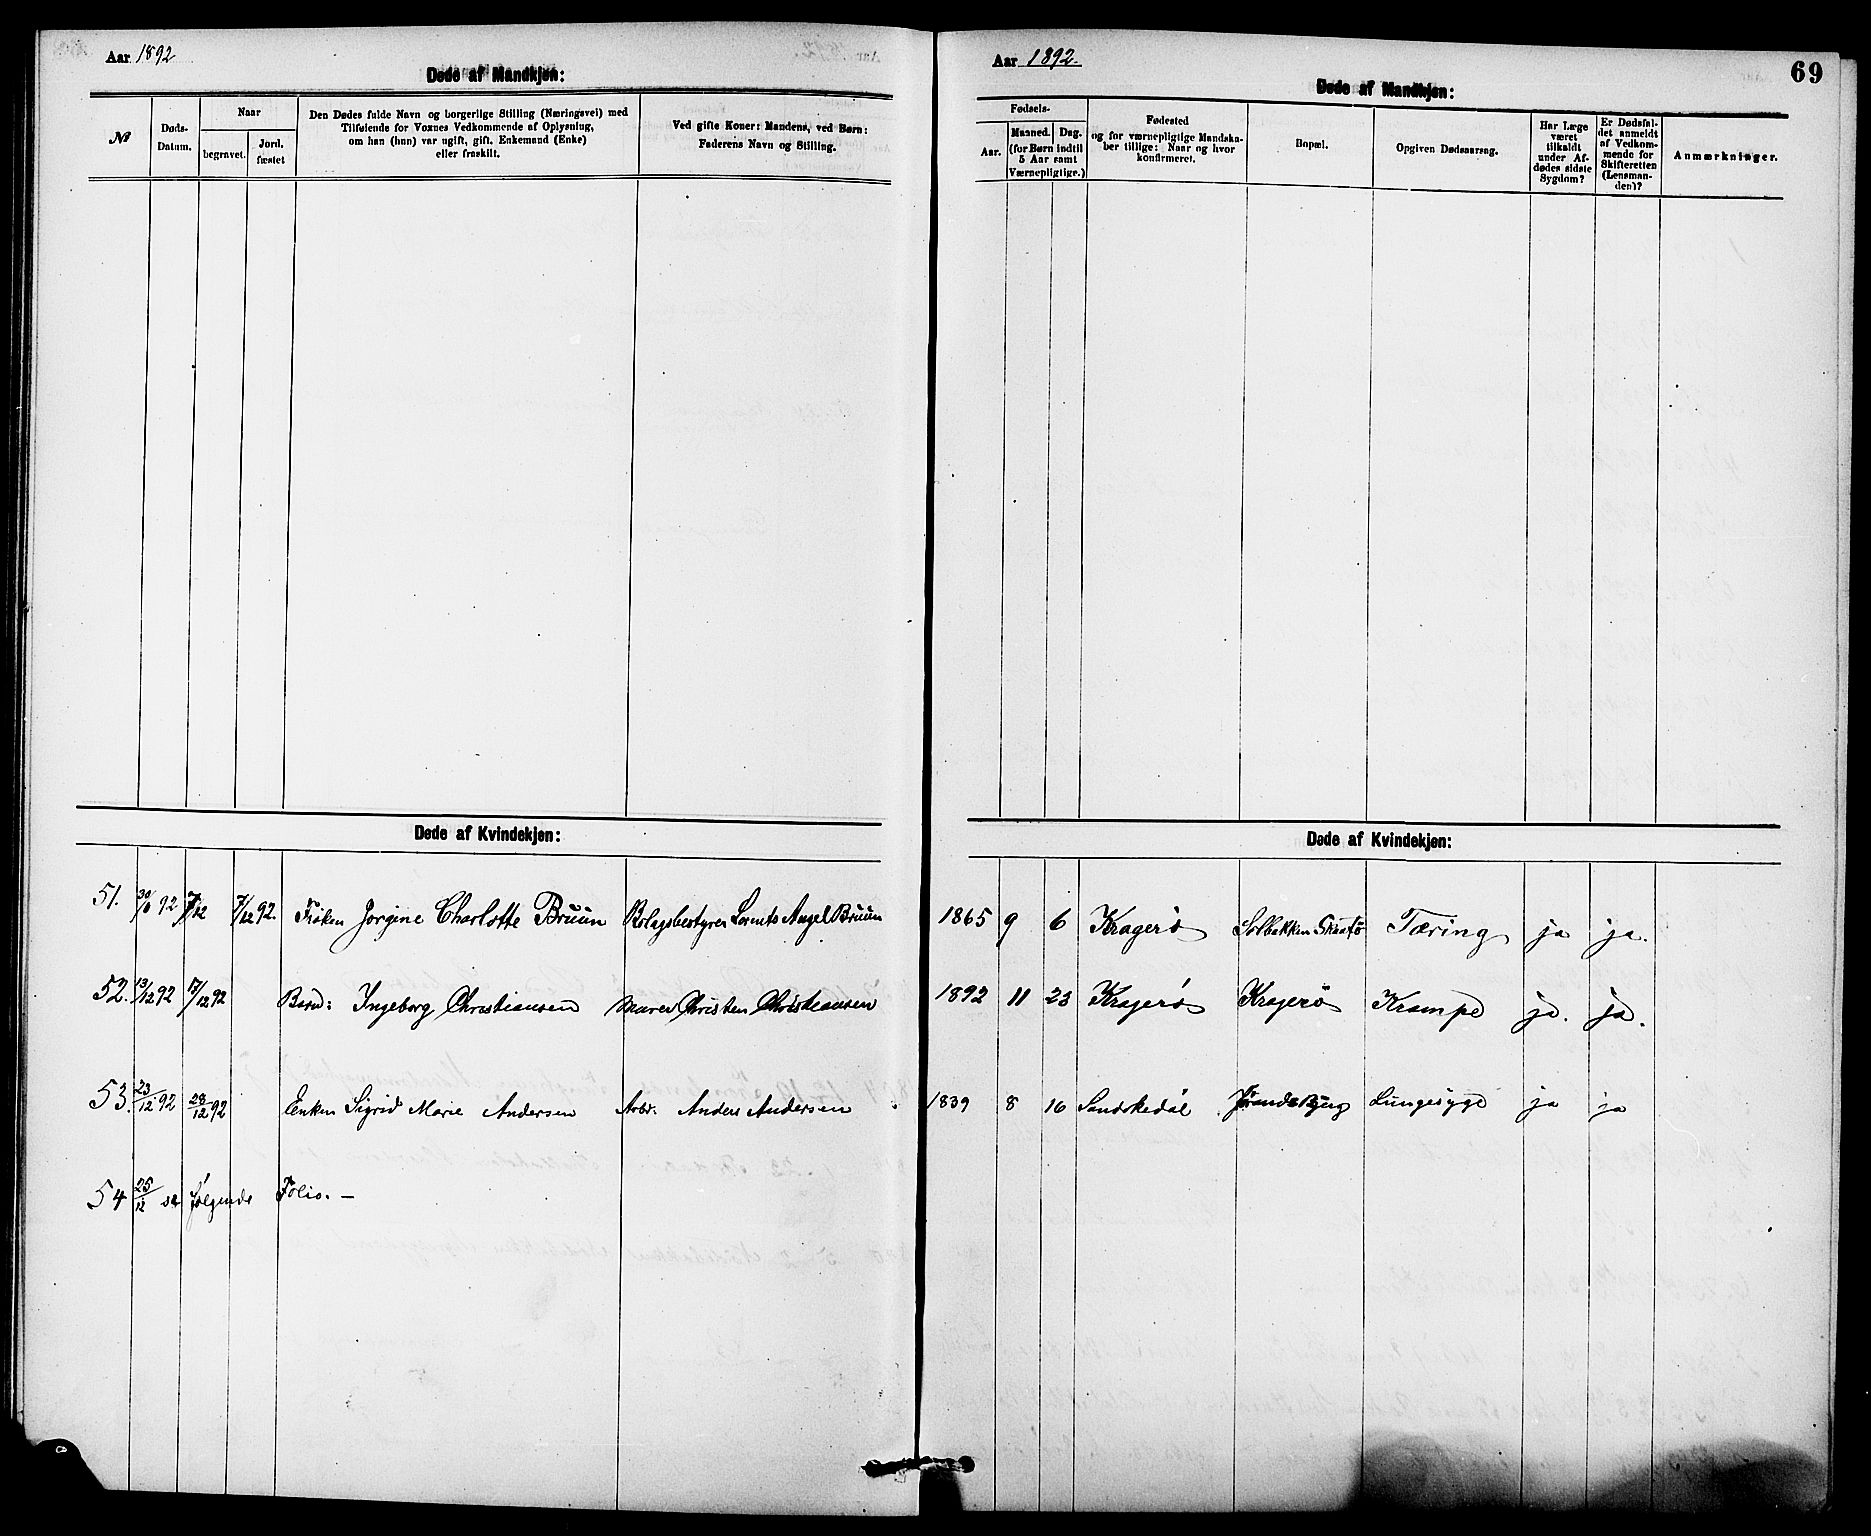 Aar 1892
Døde af Mandkjøn:
№
Døds-
Datum.
Naar
begravet.
Jord.
fæstet
Den Dødes fulde Navn og borgerlige Stilling (Næringsvei) med
Tilføiende for Voxnes Vedkommende af Oplysning,
om han (hun) var ugift, gift, Enkemand (Enke)
eller fraskilt.
Ved gifte Koner: Mandens, ved Børn:
Faderens Navn og Stilling.
Døde af Kvindekjøn:
51. 92 7/12 7/12 92. Frøken Jorgine Charlotte Bruun Bolagsbestyrer Axel Bruun
52. 13/12 92 17/12 92 Barn: Ingeborg Christiansen Murer Christen Christiansen
53. 23/12 92 28/12 92 Enken Sigrid Marie Andersen Arbr. Anders Andersen
54 25/12 se følgende Folio. –
Aar 1892.
69
Døde af Mandkjøn:
Fødsels-
Aar.
Maaned. Dag.
(for Børn indtil
5 Aar samt
Værnepligtige.)
Fødested
og for værnepligtige Mandska-
ber tillige: Naar og hvor
konfirmeret.
Bopæl.
Opgiven Dødsaarsag.
Har Læge
været
tilkaldt
under Af-
dødes sidste
Sygdom?
Er Dødsfal-
det anmeldt
af Vedkom-
mende for
Skifteretten
(Lensman-
den)?
Anmærkninger.
Døde af Kvindekjøn:
1865 9 6 Kragerö Solbakken Skaatö Tæring ja ja.
1892 11 23 Kragerö Kragerö Krampe ja. ja.
1839 8 16 Sandøkedal Lungesyge ja ja